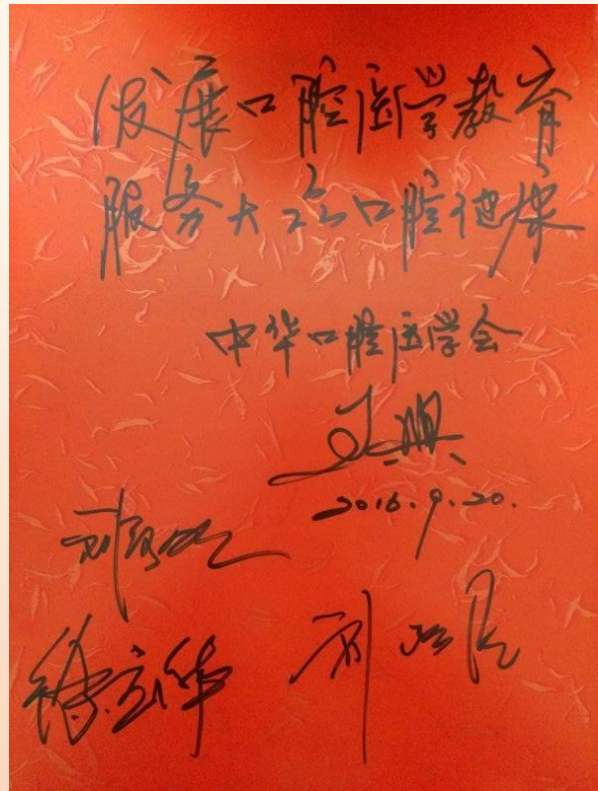 发展口腔医学教育
服务大众口腔健康
中华口腔医学会
王兴
2016.9.20.